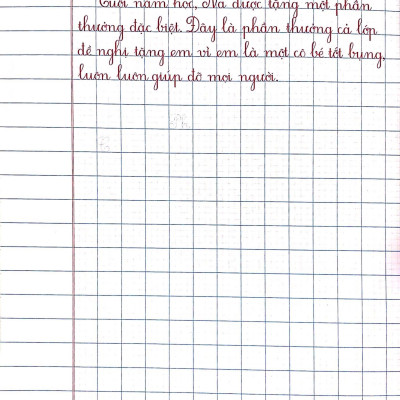 Cuối năm học, Na được tặng một phần
thưởng đặc biệt. Đây là phần thưởng cả lớp
đề nghị tặng em vì em là một cô bé tốt bụng,
luôn luôn giúp đỡ mọi người.